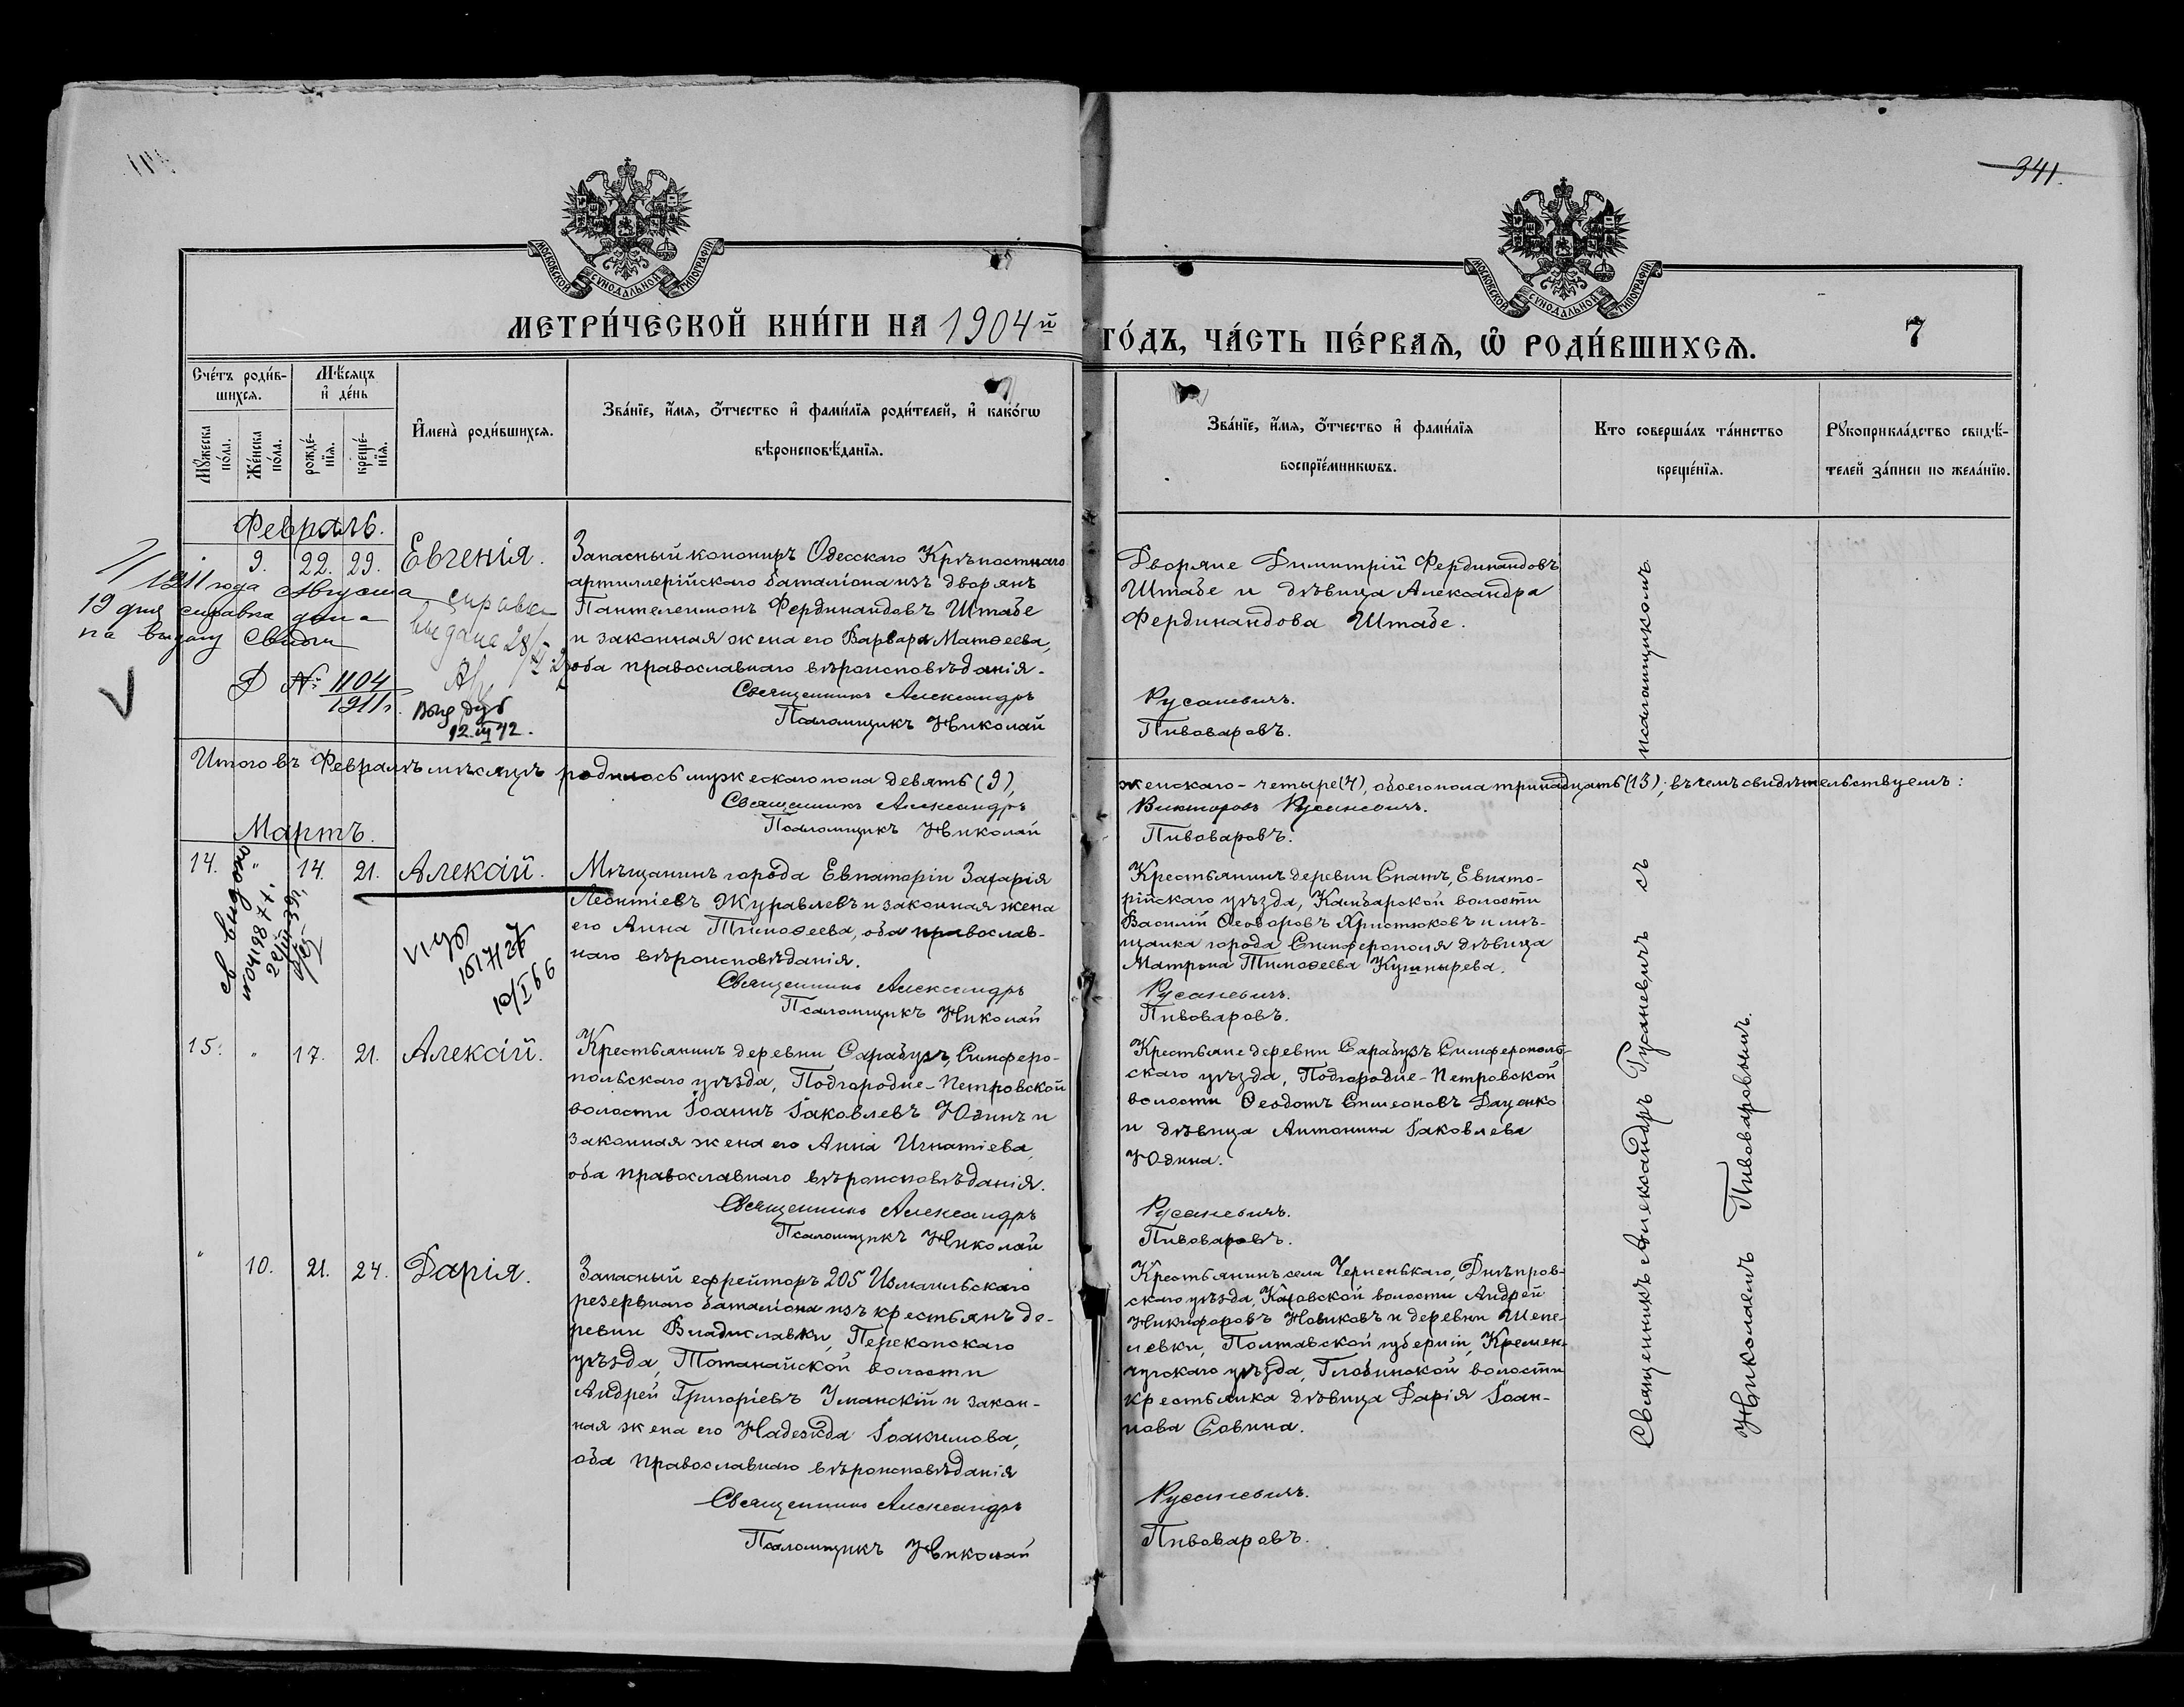 341.
МОСКОВСКОЙ СѴНОДАЛЬНОЙ ТИПОГРАФІИ
МОСКОВСКОЙ СѴНОДАЛЬНОЙ ТИПОГРАФІИ
МЕТРИ́ЧЕСКОЙ КНИ́ГИ НА 1904й
ГО́ДЪ, ЧА́СТЬ ПЕ́РВАѦ, Ѽ РОДИ́ВШИХСѦ.
7
Сче́тъ роди́в-
шихсѧ.
Мѣ́сѧцъ
и҆ де́нь
Мꙋ́жеска
по́ла.
Же́нска
по́ла.
рожде́-
нїѧ.
креще́-
нїѧ.
И҆мена̀ роди́вшихсѧ.
Зва́нїе, и҆́мѧ, ѻ҆́тчество и҆ фами́лїѧ роди́телей, и҆ како́гѡ
вѣроисповѣ́данїѧ.
Зва́нїе, и҆́мѧ, ѻ҆́тчество и҆ фами́лїѧ
воспрїе́мникѡвъ.
Кто соверша́лъ та́инство
креще́нїѧ.
Рꙋкоприкла́дство свидѣ́-
телей за́писи по жела́нїю.
Февраль.
9. 22. 29. Евгенія.
Запасный канониръ Одесскаго Крѣпостного
артиллерійскаго баталіона изъ дворянъ
Пантелеимонъ Фердинандовъ Штабе
и законная жена его Варвара Матѳеева,
оба православнаго вѣроисповѣданія.
Священникъ Александръ
Псаломщикъ Николай
Дворяне Димитрій Фердинандовъ
Штабе и дѣвица Александра
Фердинандова Штабе.
Русаневичъ.
Пивоваровъ.
1911 года Августа
19 дня справка дана
на выдачу
№ 1104
1911 г.
справка
выдана 28/
12.III 72.
Итого въ Февралѣ мѣсяцѣ родилось мужескаго пола девять (9),
женскаго - четыре (4), обоего пола тринадцать (13); въ чемъ свидѣтельствуемъ:
Священникъ Александръ
Викторовъ Русаневичъ.
Псаломщикъ Николай
Пивоваровъ.
Мартъ.
14. " 14. 21. Алексій.
Мѣщанинъ города Евпаторіи Захарія
Леонтіевъ Журавлевъ и законная жена
его Анна Тимоѳеева, оба православ-
наго вѣроисповѣданія.
Священникъ Александръ
Псаломщикъ Николай
Крестьянинъ деревни Спатъ, Евпато-
рійскаго уѣзда, Камбарской волости
Василій Ѳеодоровъ Христюковъ и мѣ-
щанка города Симферополя дѣвица
Матрона Тимоѳеева Кушнырева.
Русаневичъ.
Пивоваровъ.
св видано
10/I 66
15. " 17. 21. Алексій.
Крестьянинъ деревни Сарабузъ, Симферо-
польскаго уѣзда, Подгородне-Петровской
волости Іоаннъ Іаковлевъ Юдинъ и
законная жена его Анна Игнатіева,
оба православнаго вѣроисповѣданія.
Священникъ Александръ
Псаломщикъ Николай
Крестьяне деревни Сарабузъ Симферополь-
скаго уѣзда, Подгородне-Петровской
волости Ѳеодотъ Симеоновъ Даценко
и дѣвица Антонина Іаковлева
Юдина.
Русаневичъ.
Пивоваровъ.
" 10. 21. 24. Дарія.
Запасный ефрейторъ 205 Измаильскаго
резервнаго баталіона изъ крестьянъ де-
ревни Владиславки, Перекопскаго
уѣзда, Тотанайской волости
Андрей Григоріевъ Уманскій и закон-
ная жена его Надежда Іоакимова,
оба православнаго вѣроисповѣданія
Священникъ Александръ
Псаломщикъ Николай
Крестьянинъ села Черненькаго, Днѣпров-
скаго уѣзда, Каховской волости Андрей
Никифоровъ Новиковъ и деревни Шепе-
левки, Полтавской губерніи, Кремен-
чугскаго уѣзда, Глобинской волости
крестьянка дѣвица Дарія Іоан-
нова Совина.
Русаневичъ.
Пивоваровъ.
Священникъ Александръ Русаневичъ съ псаломщикомъ
Николаемъ Пивоваровымъ.